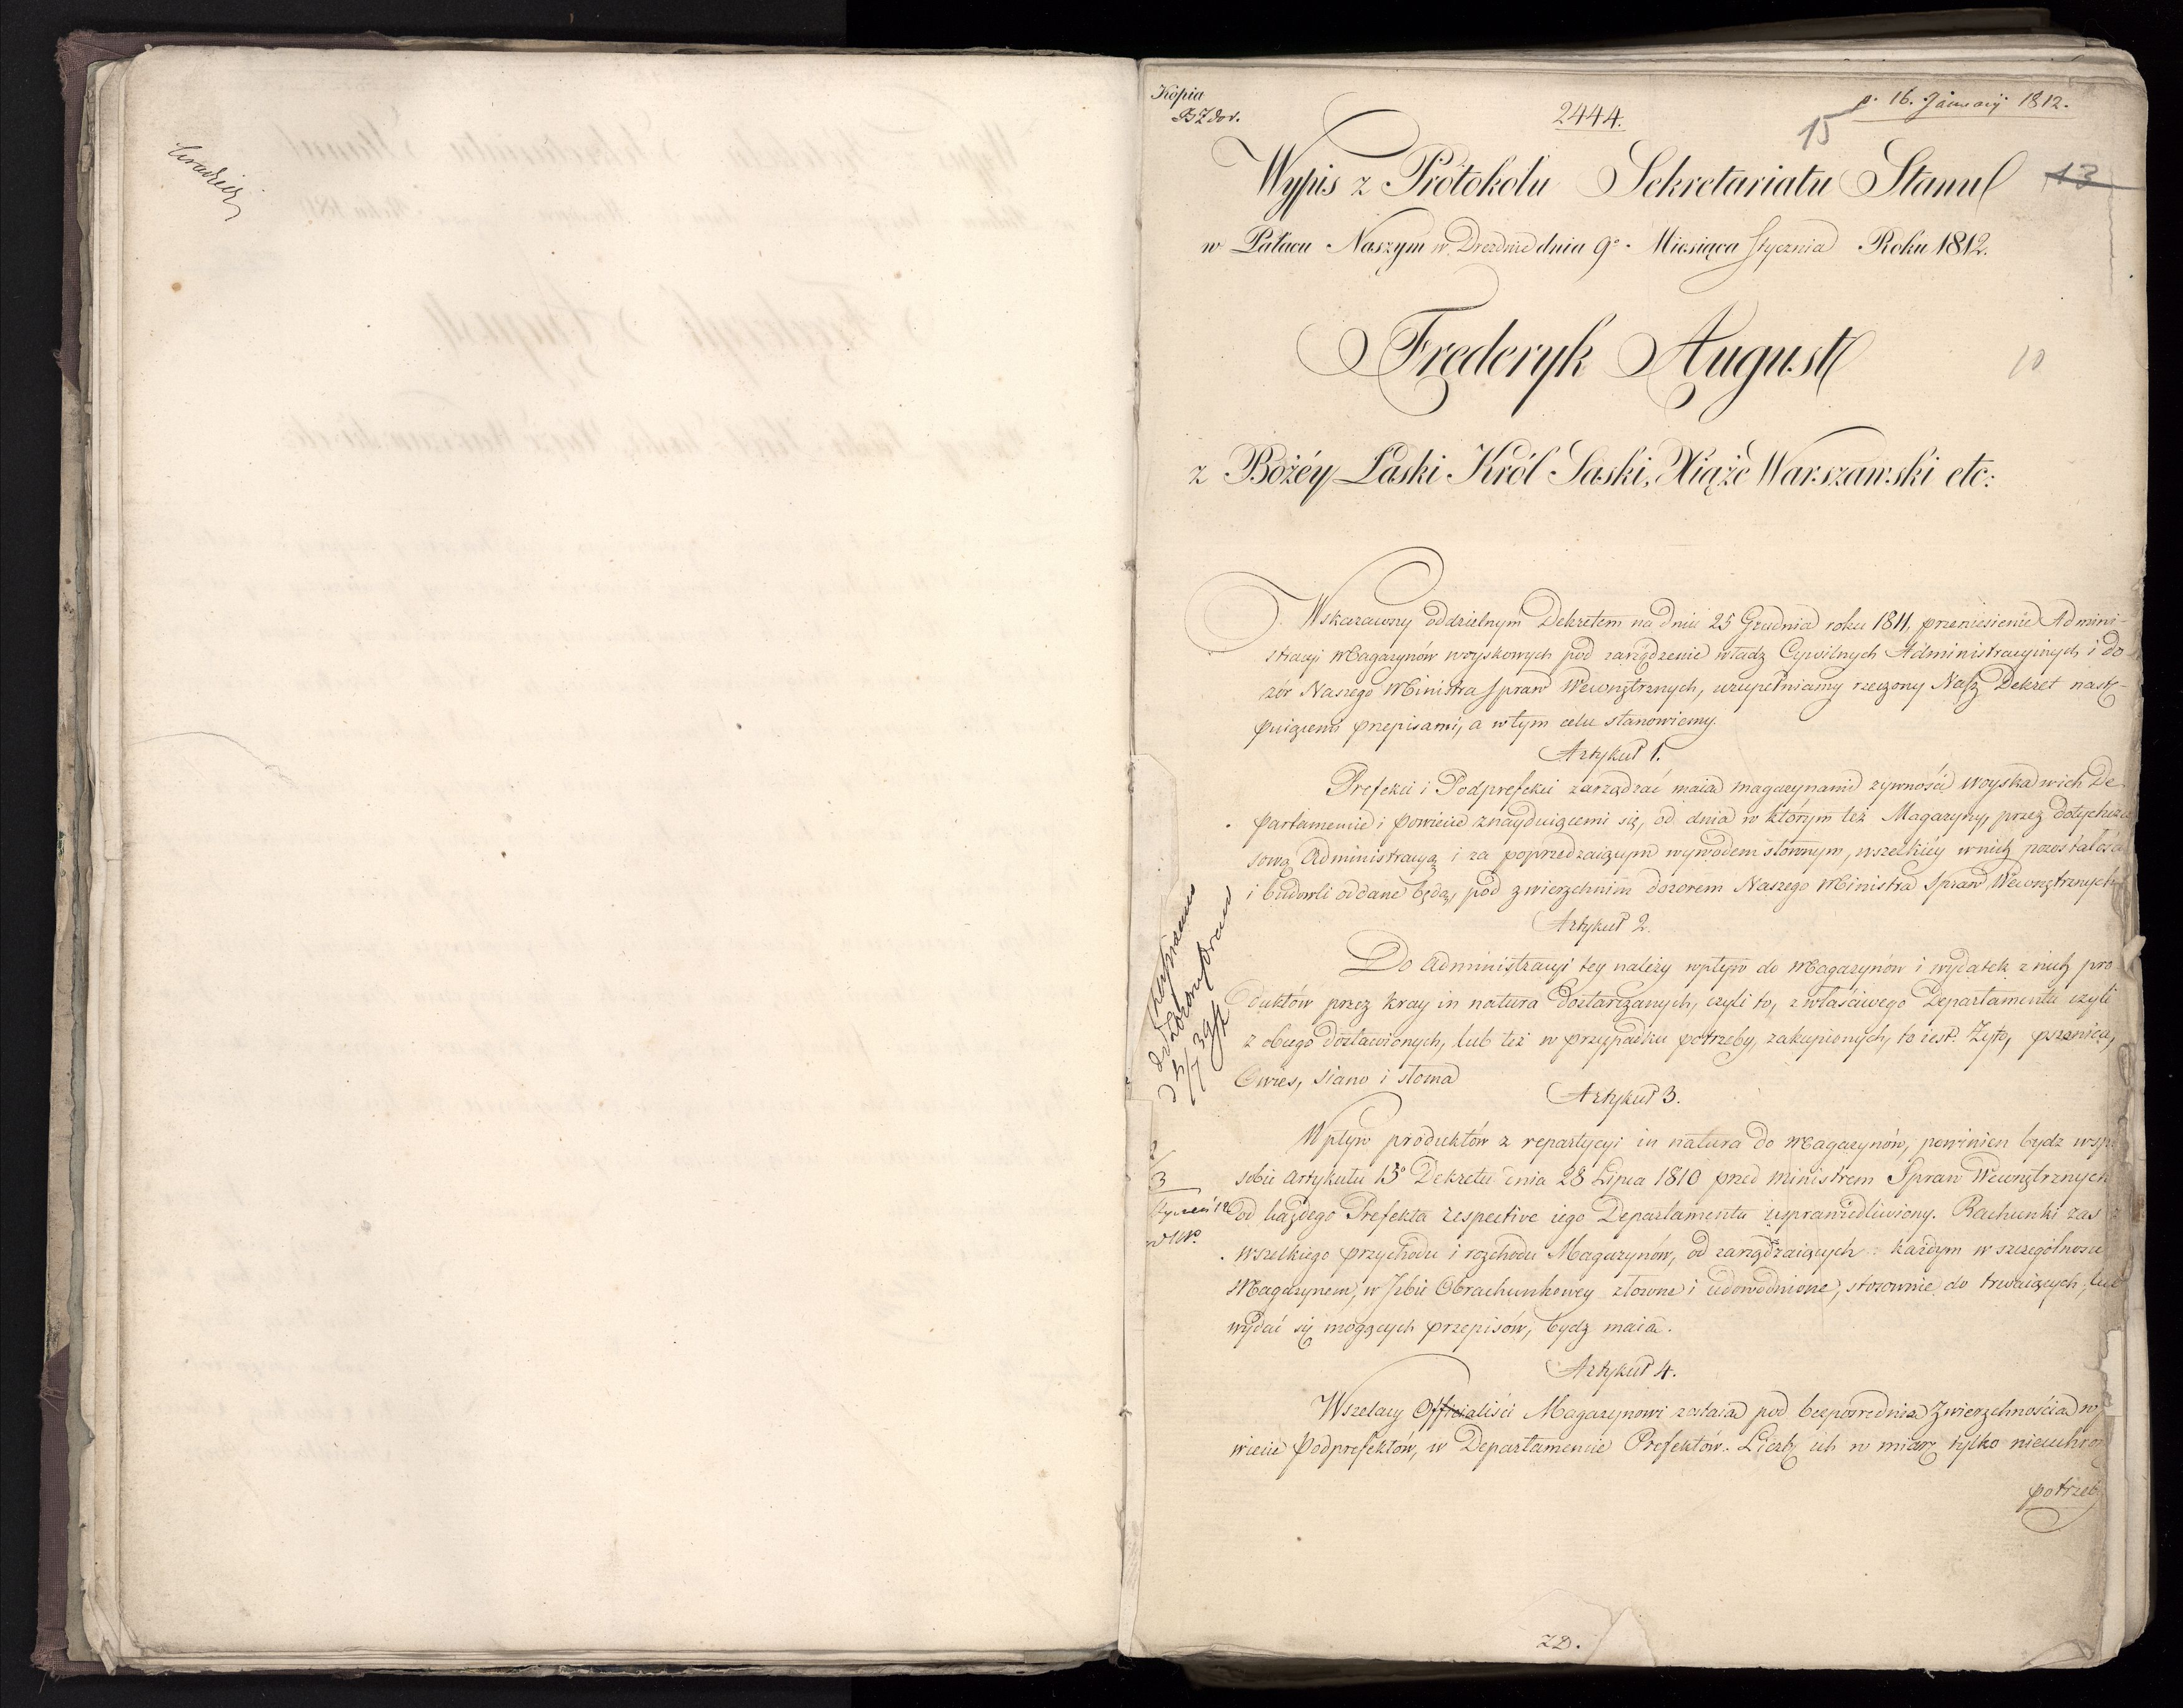 Kopia
2444.
p. 16. January 1812.
15
13
Wypis z Protokolu Sekretariatu Stanu
w Pałacu Naszym w Dreznie dnia 9º Miesiąca Stycznia Roku 1812.
Frederyk August
10
z Bożéy Łaski Król Saski, Xiąże Warszawski etc:
Wskazawszy oddzielnym Dekretem na dniu 25 Grudnia roku 1811, przeniesienie Admini-
stracyi Magazynów woyskowych pod zarządzenie władz Cywilnych Administracyinych i do-
zór Naszego Ministra Spraw Wewnętrznych, uzupełniamy rzeczony Nasz Dekret nastę-
puiącemi przepisami, a w tym celu stanowiemy.
Artykuł 1.
Prefekci i Podprefekci zarządzać maią magazynami zywności woyska w ich De
partamencie i powiecie znayduiącemi się, od dnia w którym też Magazyny, przez dotychcza
sową Administracyą i za poprzedzaiącym wywodem słownym, wszelkiey w nich pozostałości
i budowli oddane będą, pod zwierzchnim dozorem Naszego Ministra Spraw Wewnętrznych
Artykuł 2.
Do Administracyi tey należy wpływ do Magazynów i wydatek z nich pro
duktów przez kray in natura dostarczanych, czyli to, z właściwego Departamentu czyli
z obcego dostawionych, lub też w przypadku potrzeby, zakupionych, to iest: Zyto, pszenica,
Owies, siano i słoma
Artykuł 3.
Wpływ produktów z repartycyi in natura do Magazynów, powinien bydz wspo
sobie Artykułu 15º Dekretu dnia 28 Lipca 1810 przed Ministrem Spraw Wewnętrznych
od każdego Prefekta respective iego Departamentu usprawiedliwiony. Rachunki zas z
wszelkiego przychodu i rozchodu Magazynów, od zarządzaiących każdym w szczególnosci
Magazynem, w Izbie Obrachunkowey złozone i udowodnione, stosownie do trwaiących, lub
wydać się mogących przepisów, bydz maią.
Artykuł 4.
Wszelacy Officialiści Magazynowi zostaią pod bezpośrednią Zwierzchnością w
wiecie Podprefektów, w Departamencie Prefektów. Liczbę ich w miarę tylko nieuchron
potrzeb